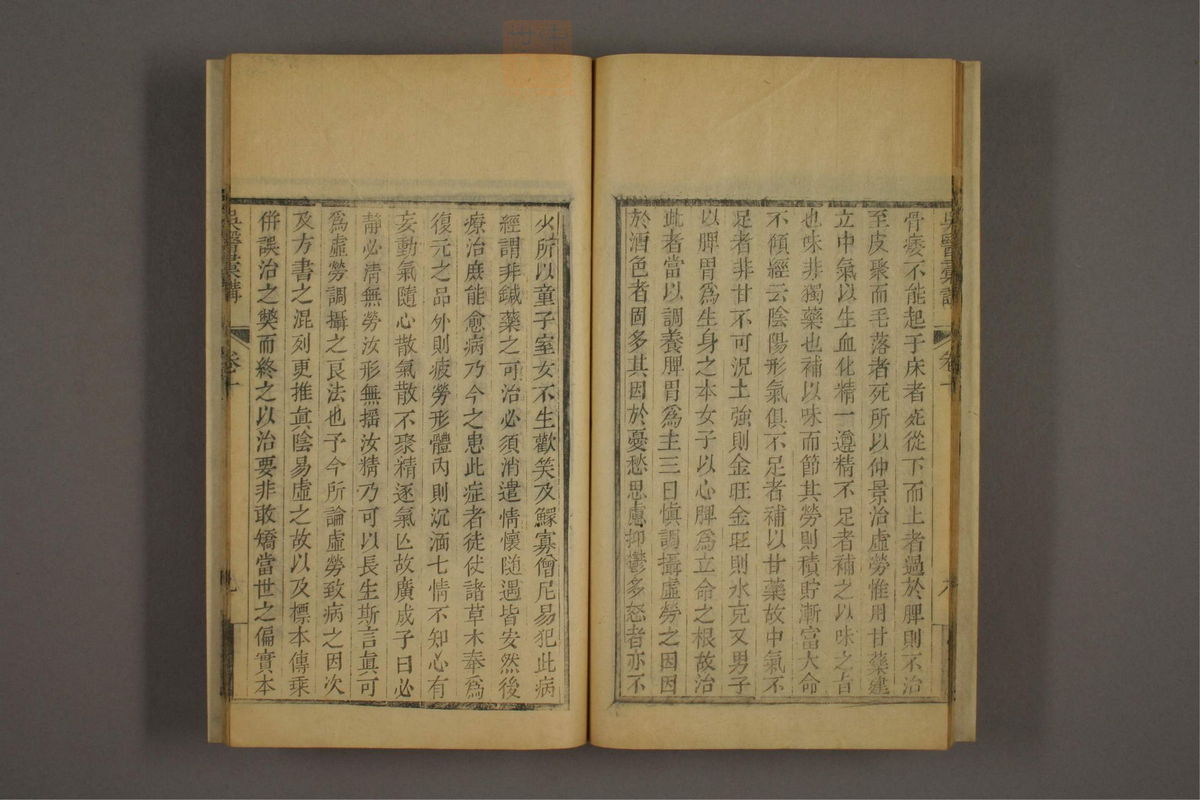 骨痿不能起于床者死從下而上者過於脾則不治
至皮聚而毛落者死所以仲景治虛勞惟用甘藥建
立中氣以生血化精一遵精不足者補之以味之旨
也味非獨藥也補以味而節其勞則積貯漸富大命
不傾經云陰陽形氣俱不足者補以甘藥故中氣不
足者非甘不可況土強則金旺金旺則水克又男子
以脾胃爲生身之本女子以心脾爲立命之根故治
此者當以調養脾胃爲主三曰慎調攝虛勞之因因
於酒色者固多其因於憂愁思慮抑鬱多怒者亦不
吳醫彙講
卷十
九
少所以童子室女不生歡笑及鰥寡僧尼易犯此病
經謂非鍼藥之可治必須消遣情懷隨遇皆安然後
療治庶能愈病乃今之患此症者徒使諸草木奉爲
復元之品外則疲勞形體內則沉湎七情不知心有
妄動氣隨心散氣散不聚精逐氣亾故廣成子曰必
靜必清無勞汝形無搖汝精乃可以長生斯言眞可
爲虛勞調攝之良法也予今所論虛勞致病之因次
及方書之混列更推眞陰易虛之故以及標本傳乘
併誤治之獘而終之以治要非敢矯當世之偏實本
吳醫彙講
卷十
九